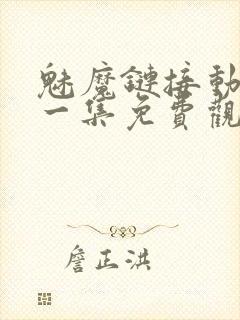 魅魔鏈接動
一集免費觀
詹正洪